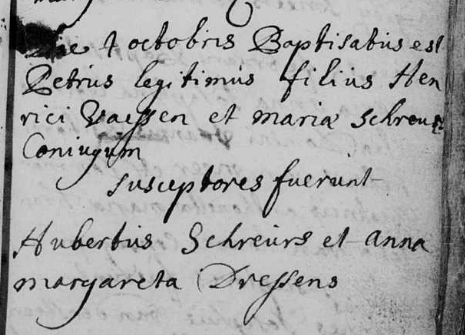 Die 4 octobris Baptisatus est
Petrus legitimus filius Hen
rici Vaessen et maria schreurs
Coniugum
susceptores fuerunt
Hubertus Schreurs et anna
margareta Dressens